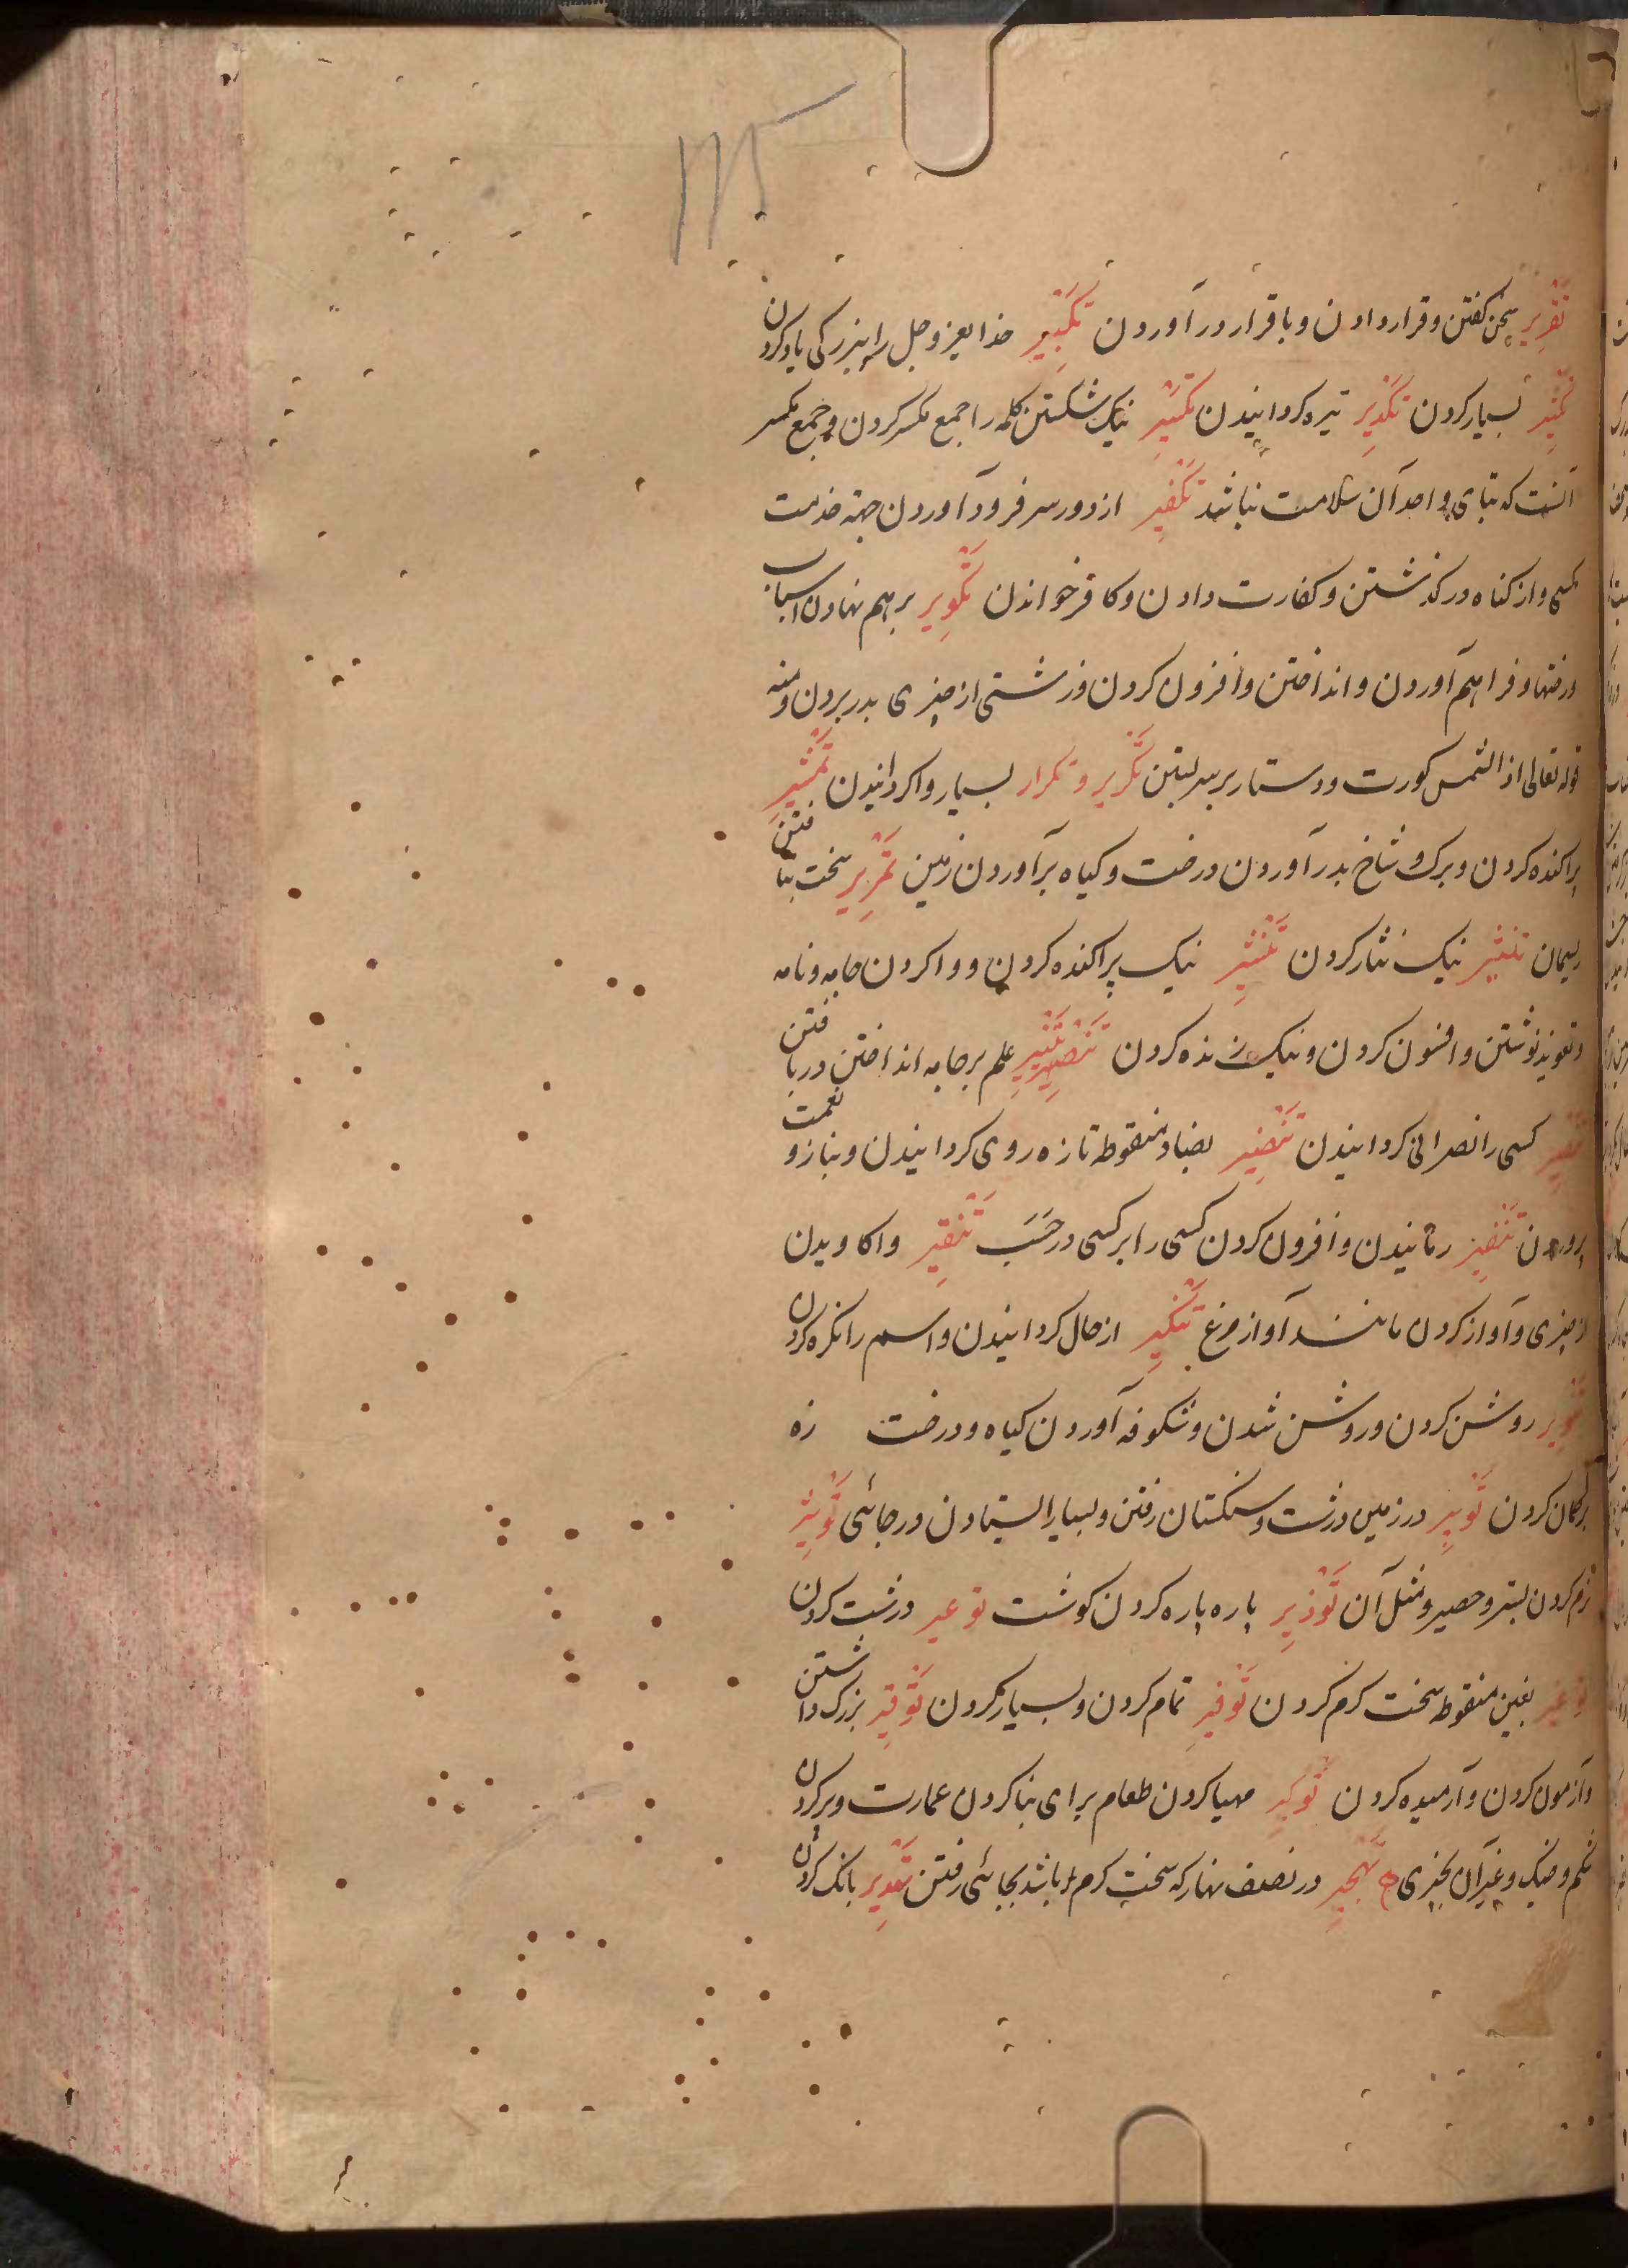 ۱۱۵
تَقْرِیر سخن کفتن و قرار دادن و باقرار در آوردن تَکْبِیر خدایعز وجل را ببزرکی یاد کردن
تَکْثِیر بسیار کردن تَکْدِیر تیره کردانیدن تَکْسِیر نیک شکستن کلمه را جمع مکسر کردن و جمع مکسر
آنست که بنای واحد آن سلامت نباشد تَکْفِیر از دور سر فرود آوردن جهة خدمت
کسی و از کناه در کذشتن و کفارت دادن و کافر خواندن تَکْوِیر بر هم نهادن اسباب
و رختها و فراهم آوردن و انداختن و افزون کردن و زشتی از چیزی بدر بردن و منه
قوله تعالی اذا الشمس کورت و دستار بر سر بستن تَکْرِیر و تکرار بسیار واکردانیدن تَمْشِیر
پراکنده کردن و برک و شاخ بدر آوردن درخت و کیاه برآوردن زمین تَمْرِیر سخت بتافتن
ریسمان تنثیر نیک نثار کردن تَنْشِیر نیک پراکنده کردن و واکردن جامه و نامه
و تعویذ نوشتن و افسون کردن و نیک زنده کردن تَنْصِیر تَنْیِیر علم بر جامه انداختن در بافتن
تَنْصِیر کسی را نصرانی کردانیدن تَنْضِیر بضاد منقوطه تازه روی کردانیدن و بناز و نعمت
پروردن تَنْفِیر رمانیدن و افزون کردن کسی را بر کسی در حَسَب تَنْقِیر واکاویدن
از چیزی و آواز کردن مانند آواز مرغ تَنْکِیر از حال کردانیدن و اسم را نکره کردن
تَنْوِیر روشن کردن و روشن شدن و شکوفه آوردن کیاه و درخت زه
بر کمان کردن تَوْبِیر در زمین درشت و سنکستان رفتن و بسیار ایستادن در جائی تَوْثِیر
نرم کردن بستر و حصیر و مثل آن تَوْذِیر پاره پاره کردن کوشت توعیر درشت کردن
توغیر بغین منقوطه سخت کرم کردن تَوْفِیر تمام کردن و بسیار کردن تَوْقِیر بزرک داشتن
و آزمون کردن و آرمیده کردن تَوْکِیر مهیا کردن طعام برای بنا کردن عمارت و پر کردن
شکم و خیک و غیر آن بچیزی تَهْجِیر در نصف نهار که سخت کرم باشد بجائی رفتن تَهْدِیر بانک کردن